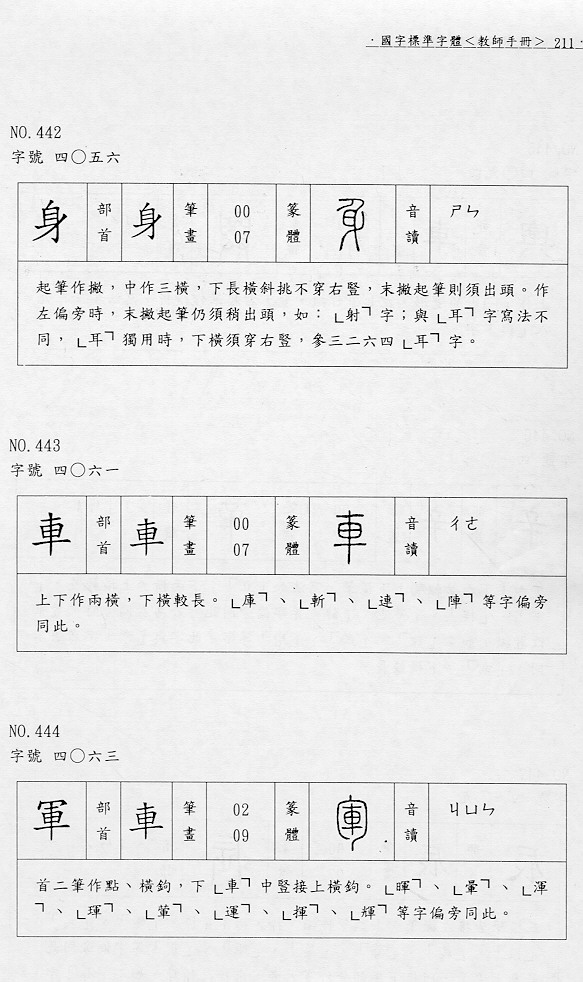 ·國字標準字體＜教師手冊＞ 211·
NO.442
字號 四〇五六
身 部首 身 筆畫 00 07 篆體 身 音讀 ㄕㄣ
起筆作撇，中作三橫，下長橫斜挑不穿右豎，末撇起筆則須出頭。作
左偏旁時，末撇起筆仍須稍出頭，如：「射」字；與「耳」字寫法不
同，「耳」獨用時，下橫須穿右豎，參三二六四「耳」字。
NO.443
字號 四〇六一
車 部首 車 筆畫 00 07 篆體 車 音讀 ㄔㄜ
上下作兩橫，下橫較長。「庫」、「斬」、「連」、「陣」等字偏旁
同此。
NO.444
字號 四〇六三
軍 部首 車 筆畫 02 09 篆體 軍 音讀 ㄐㄩㄣ
首二筆作點、橫鉤，下「車」中豎接上橫鉤。「暉」、「暈」、「渾
」、「琿」、「葷」、「運」、「揮」、「輝」等字偏旁同此。